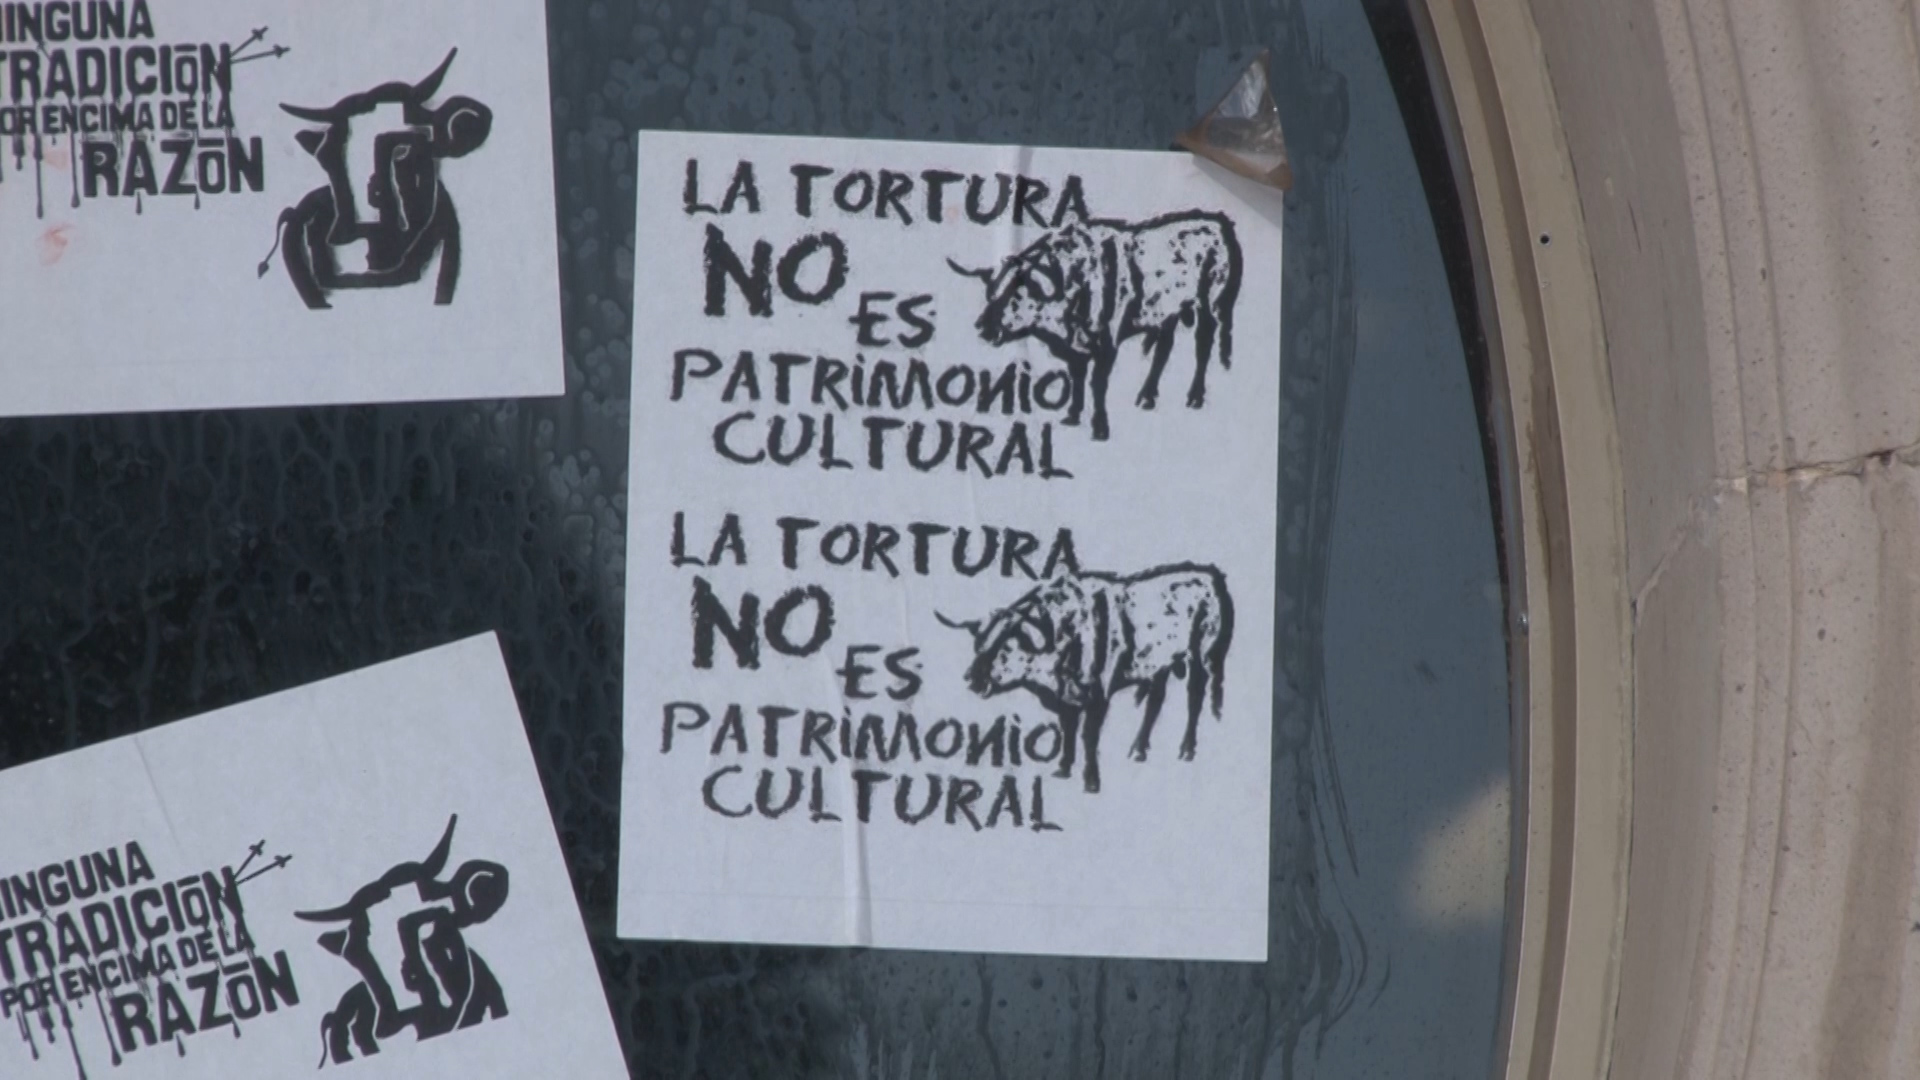 NINGUNA
TRADICIÓN
POR ENCIMA DE LA
RAZÓN
LA TORTURA
NO ES
PATRIMONIO
CULTURAL
LA TORTURA
NO ES
PATRIMONIO
CULTURAL
NINGUNA
TRADICIÓN
POR ENCIMA DE LA
RAZÓN